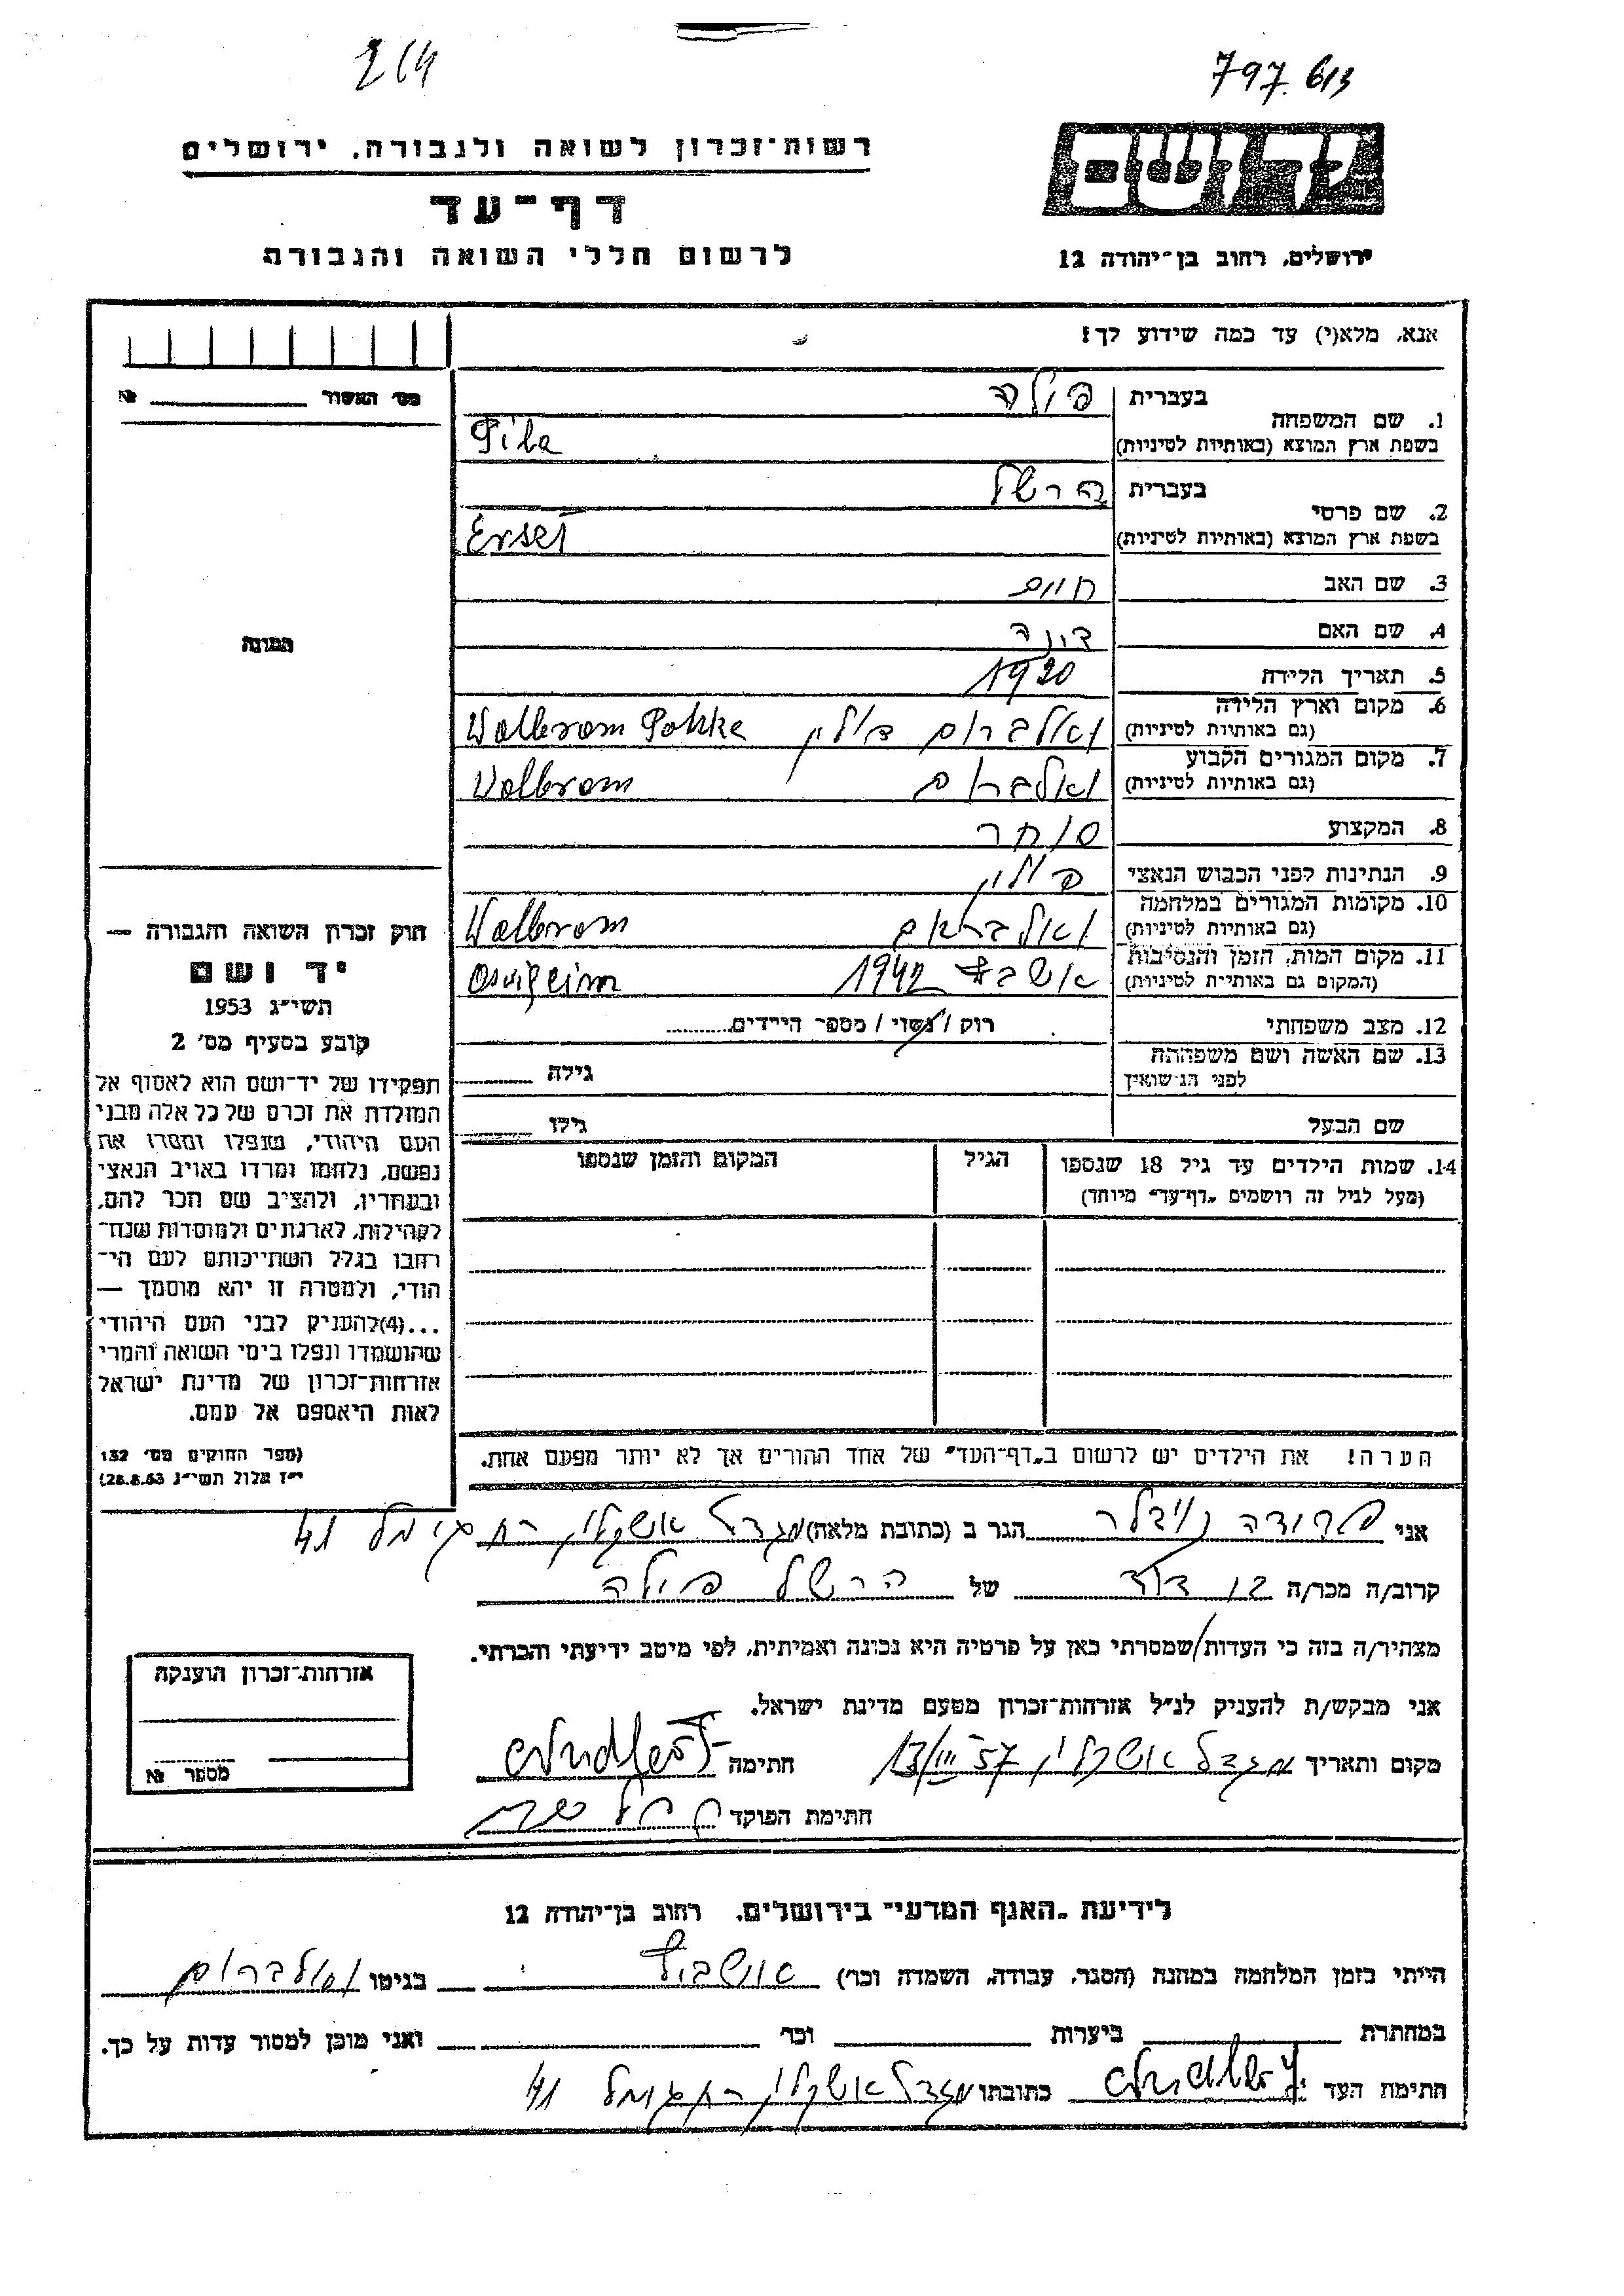 214
797.613
רשות־זכרון לשואה ולגבורה, ירושלים
דף־עד
לרשום חללי השואה והגבורה
יד ושם
ירושלים, רחוב בן־יהודה 12
אנא, מלא(י) עד כמה שידוע לך!
מס׳ האשור №
1. שם המשפחה בעברית פילה
בשפת ארץ המוצא (באותיות לטיניות) Pila
2. שם פרטי בעברית הרשל
בשפת ארץ המוצא (באותיות לטיניות)
3. שם האב חיים
4. שם האם
5. תאריך הלידה 1920
6. מקום וארץ הלידה
(גם באותיות לטיניות) ואלברום פולין Wolbrom
7. מקום המגורים הקבוע
(גם באותיות לטיניות) ואלברום Wolbrom
8. המקצוע סוחר
9. הנתינות לפני הכבוש הנאצי פולין
10. מקומות המגורים במלחמה
(גם באותיות לטיניות) ואלבראם Wolbrom
11. מקום המות, הזמן והנסיבות
(המקום גם באותיות לטיניות) 1942
12. מצב משפחתי רוק / נשוי / מספר הילדים
13. שם האשה ושם משפחתה
לפני הנישואין גילה
שם הבעל גילו
14. שמות הילדים עד גיל 18 שנספו הגיל המקום והזמן שנספו
(מעל לגיל זה רושמים „דף־עד״ מיוחד)
הערה! את הילדים יש לרשום ב„דף־העד״ של אחד ההורים אך לא יותר מפעם אחת.
התמונה
חוק זכרון השואה והגבורה —
יד ושם
תשי״ג 1953
קובע בסעיף מס׳ 2
תפקידו של יד־ושם הוא לאסוף אל
המולדת את זכרם של כל אלה מבני
העם היהודי, שנפלו ומסרו את
נפשם, נלחמו ומרדו באויב הנאצי
ובעוזריו, ולהציב שם וזכר להם,
לקהילות, לארגונים ולמוסדות שנח־
רבו בגלל השתייכותם לעם הי־
הודי, ולמטרה זו יהא מוסמך —
...(4)להעניק לבני העם היהודי
שהושמדו ונפלו בימי השואה והמרי
אזרחות־זכרון של מדינת ישראל
לאות היאספם אל עמם.
(ספר החוקים מס׳ 132
י״ז אלול תשי״ג 28.8.53)
אני פרודה הגר ב (כתובת מלאה) מגדל אשקלון 41
קרוב/ה מכר/ה בן דוד של הרשל פילה
מצהיר/ה בזה כי העדות שמסרתי כאן על פרטיה היא נכונה ואמיתית, לפי מיטב ידיעתי והכרתי.
אני מבקש/ת להעניק לנ״ל אזרחות־זכרון מטעם מדינת ישראל.
מקום ותאריך מגדל אשקלון 13/III 57 חתימה
חתימת הפוקד
אזרחות־זכרון הוענקה
מספר №
לידיעת „האגף המדעי״ בירושלים, רחוב בן־יהודה 12
הייתי בזמן המלחמה במחנה (הסגר, עבודה, השמדה וכו׳) בגיטו וואלברום
במחתרת ביערות וכו׳ ואני מוכן למסור עדות על כך.
חתימת העד כתובתו מגדל אשקלון 41